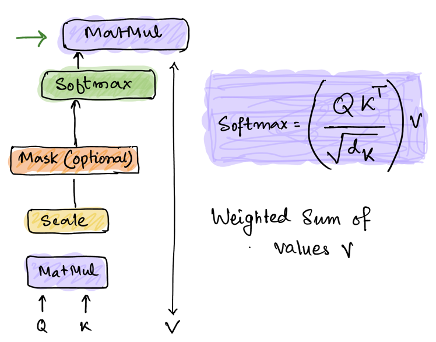 MatMul
Softmax
Mask (optional)
Scale
MatMul
Q K V
Softmax = (Q K^T / √d_K) V
Weighted Sum of
values V